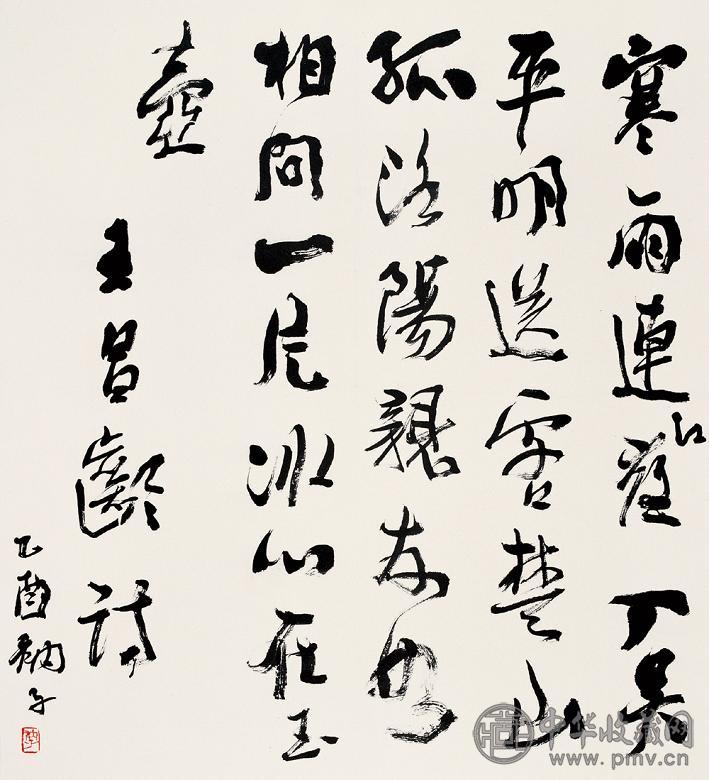 寒雨連江夜入吳
平明送客楚山
孤洛陽親友如
相問一片冰心在玉
壺
王昌齡詩
乙酉
中华收藏网
www.pmv.cn